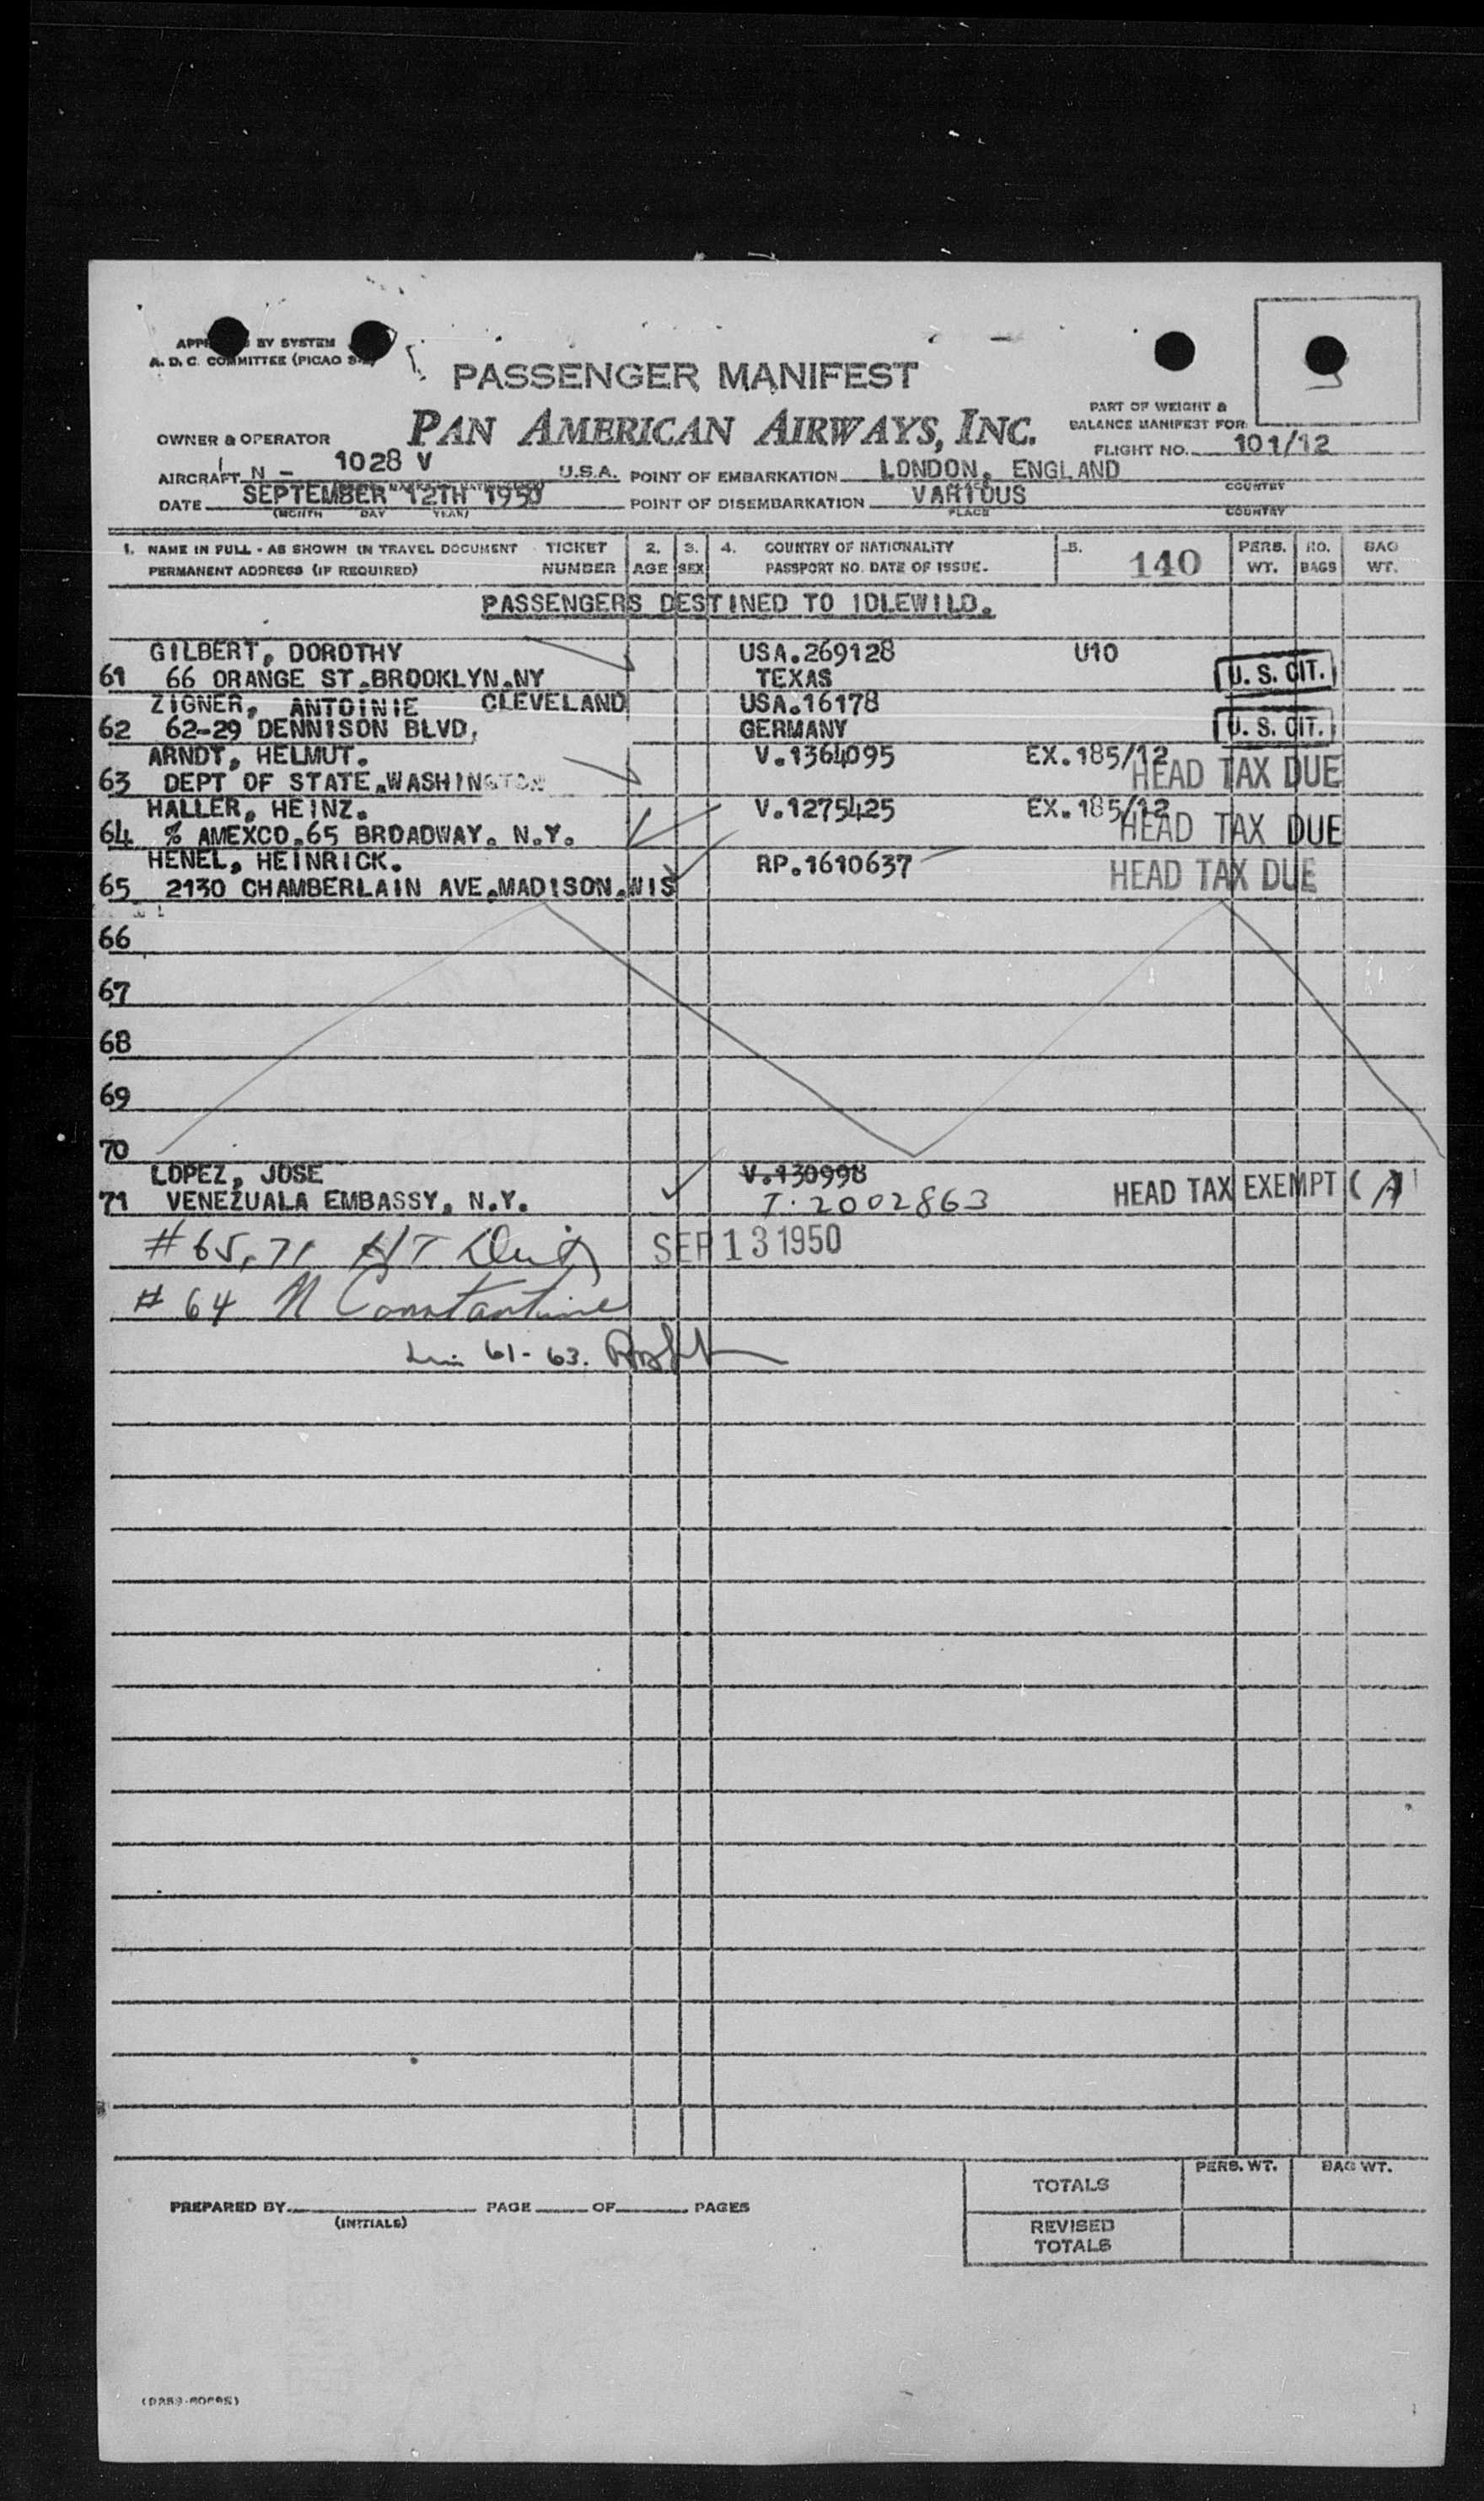 APP BY SYSTEM
A. D. C. COMMITTEE (PICAO
PASSENGER MANIFEST
OWNER & OPERATOR PAN AMERICAN AIRWAYS, INC.
PART OF WEIGHT &
BALANCE MANIFEST FOR
FLIGHT NO. 101/12
AIRCRAFT N - 1028 V U.S.A. POINT OF EMBARKATION LONDON, ENGLAND
COUNTRY
DATE SEPTEMBER 12TH 1950 POINT OF DISEMBARKATION VARIOUS
(MONTH DAY YEAR) PLACE COUNTRY
1. NAME IN FULL - AS SHOWN IN TRAVEL DOCUMENT TICKET 2. 3. 4. COUNTRY OF NATIONALITY 5. 140 PERS. NO. BAG
PERMANENT ADDRESS (IF REQUIRED) NUMBER AGE SEX PASSPORT NO. DATE OF ISSUE. WT. BAGS WT.
PASSENGERS DESTINED TO IDLEWILD.
GILBERT, DOROTHY USA.269128 U10
61 66 ORANGE ST.BROOKLYN.NY TEXAS U. S. CIT.
ZIGNER, ANTOINIE CLEVELAND USA.16178
62 62-29 DENNISON BLVD, GERMANY U. S. CIT.
ARNDT, HELMUT. V.1364095 EX.185/12
63 DEPT OF STATE.WASHINGTON HEAD TAX DUE
HALLER, HEINZ. V.1275425 EX.185/12
64 % AMEXCO.65 BROADWAY. N.Y. HEAD TAX DUE
HENEL, HEINRICK. RP.1610637 HEAD TAX DUE
65 2130 CHAMBERLAIN AVE.MADISON.WIS
66
67
68
69
70
LOPEZ, JOSE V.130998
71 VENEZUALA EMBASSY, N.Y. T.2002863 HEAD TAX EXEMPT (A)
#65,71 SEP 13 1950
#64 N Constantine
61-63.
PREPARED BY PAGE OF PAGES
(INITIALS)
PERS. WT. BAG WT.
TOTALS
REVISED
TOTALS